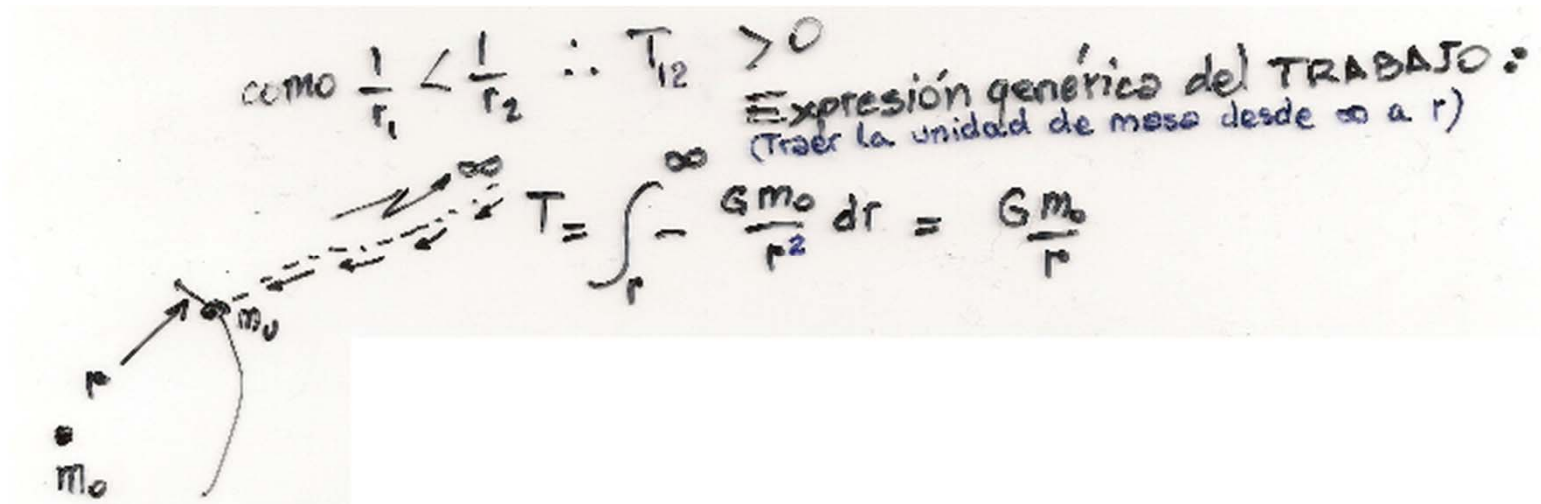 como 1/r₁ < 1/r₂ ∴ T₁₂ > 0
Expresión genérica del TRABAJO:
(Traer la unidad de masa desde ∞ a r)
∞
T = ∫_r^∞ - G m₀/r² dr = G m₀/r
m₀
r
m₀